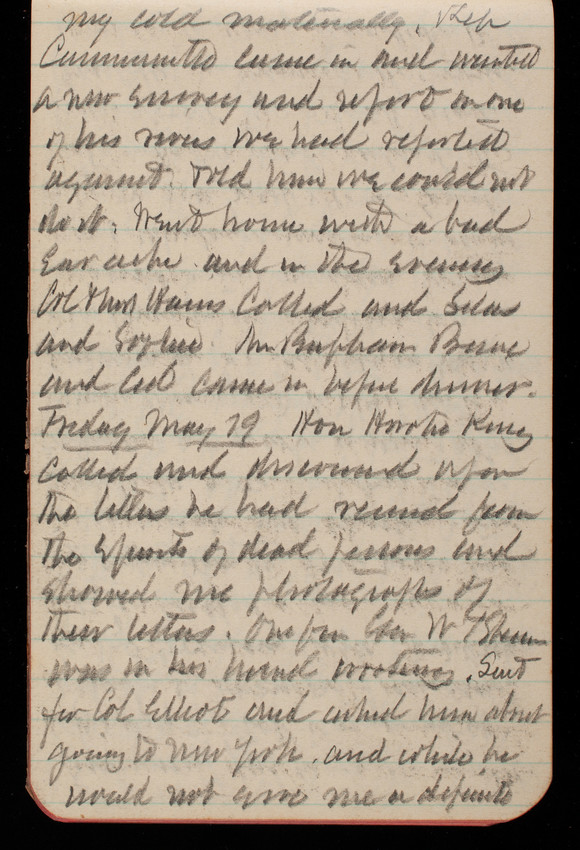 my cold materially. Rep
Cummings came in and wanted
a new survey and report on one
of his rivers we had reported
against. Told him we could not
do it. Went home with a bad
Ear ache and in the evening
Col & Mrs Haines Called and Silas
and Sophie. Mr
and Ceil came in before dinner.
Friday May 19 Hon Horatio King
Called and discoursed upon
the letters he had received from
the Spirits of dead persons and
showed me photographs of
their letters. One from Gen W T Sherman
was in his hand writing. Sent
for Col Elliot and asked him about
going to New York. and while he
would not give me a definite